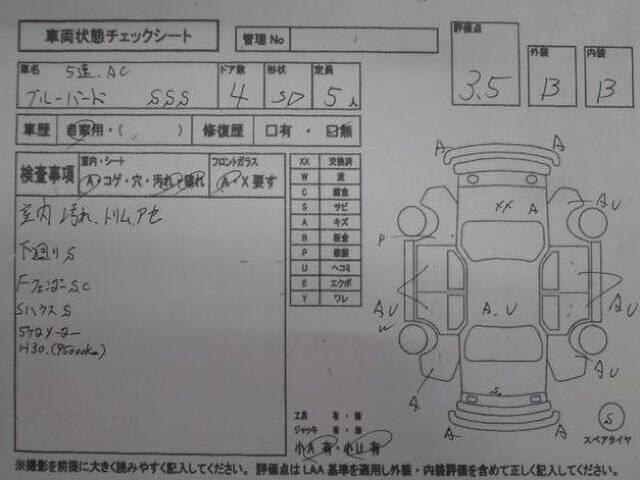 車両状態チェックシート
管理No
評価点
3.5
外装
B
内装
B
車名
5速. AC
ブルーバード SSS
ドア数
4
形状
SD
定員
5人
車歴
自家用・( )
修復歴
口有・☑無
検査事項
室内・シート
A コゲ・穴・汚れ・破れ
フロントガラス
A・X要す
XX 交換済
W 波
C 腐食
S サビ
A キズ
B 板金
P 塗装
U ヘコミ
E エクボ
Y ワレ
室内 汚れ.トリム.アセ
下廻りS
FフェンダーSC
SハウスS
H30.(95000km)
A
A
XX
A
AU
P
A.U
AU
W
AU
A
AU
S
A
A
S
スペアタイヤ
工具 有・無
ジャッキ 有・無
小A有・小U有
※撮影を前提に大きく読みやすく記入してください。 評価点はLAA基準を適用し外装・内装評価を含めて正しく記入してください。